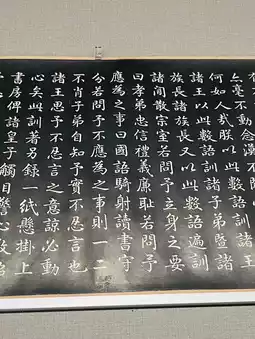 毫不動念漠不關
何如人哉朕以此數語訓
諸王以此數語訓諸子弟暨諸
族長諸族長又以此數語遍訓
諸間散宗室若問予立身之要
曰孝弟忠信禮義廉恥若問予
應為之事曰國語騎射讀書守
分若問予不應為之事則一二
不肖子弟自知予實不忍言也
諸王思予不忍言之意諒必動
心矣此訓著另錄一紙懸掛上
書房俾諸皇子觸目警心敬